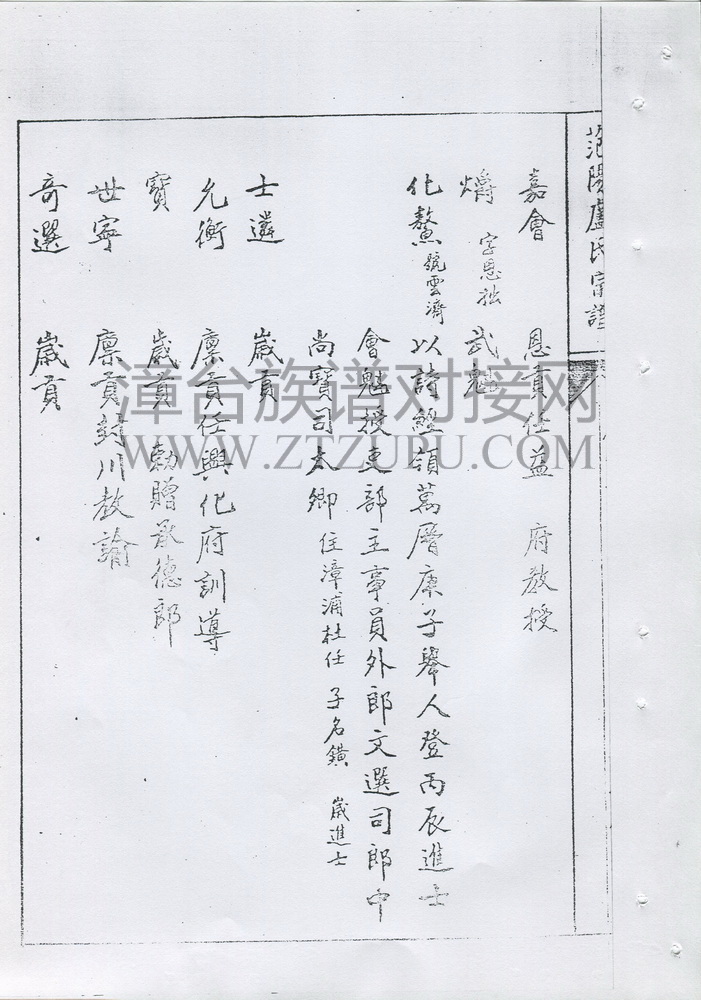 范陽盧氏宗譜
嘉會 恩貢任益 府教授
爝 字思祉 武魁
化鰲 號雲濟 以詩經領萬曆庚子舉人登丙辰進士
會魁授吏部主事員外郎文選司郎中
尚寶司太卿 住漳浦杜任 子名鐄 歲進士
士遴 歲貢
允衡 廩貢任興化府訓導
寶 歲貢 勅贈承德郎
世寧 廩貢封川教諭
奇選 歲貢
漳台族谱对接网
WWW.ZTZUPU.COM